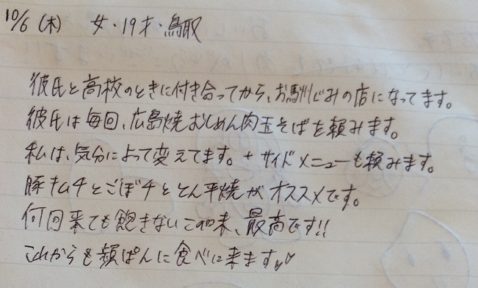 10/6 (木) 女・19才・鳥取
彼氏と高校のときに付き合ってから、お馴じみの店になってます。
彼氏は毎回、広島焼おじめん肉玉そばを頼みます。
私は、気分によって変えてます。+サイドメニューも頼みます。
豚キムチとごぼチととん平焼がオススメです。
何回来ても飽きないこの味、最高です!!
これからも頻ぱんに食べに来ます♡♡